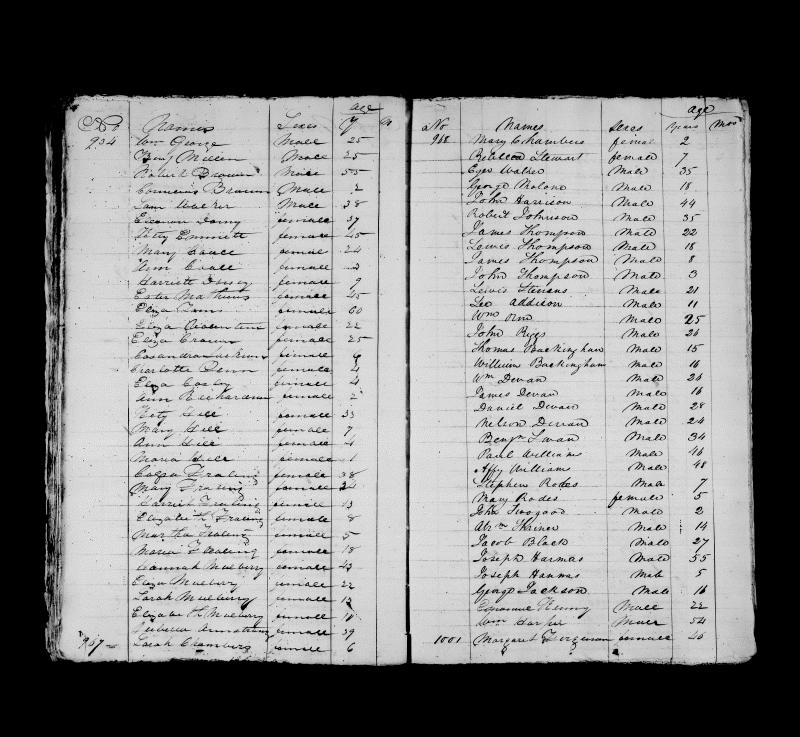 age
No Names Sexes Y M
934 Wm George Male 25
Benj Millen Male 25
Robert Brown Male 55
Brown Male 2
Sam Walker Male 38
female 37
Hety Emmett female 45
Mary female 24
Ann female
Harriett Dorsey female 9
Ester Mathews female 45
Eliza female 60
Eliza female 22
Eliza Brown female 25
female
Charlotte Denn female 4
Eliza Cooly female 4
Ann Richardson female 2
Hety Gill female 33
Mary Gill female 7
Ann Gill female 4
Maria Gill female 1
female 38
Mary female 24
Harriet female 13
Elizabeth female 8
Martha female 5
Maria female 18
Hannah Mulberry female 43
Eliza Mulberry female 22
Sarah Mulberry female 13
Elizabeth Mulberry female
Rebecca Armstrong female 39
967 Sarah Chambers female 6
age
No Names Sexes Years Mos
968 Mary Chambers femal 2
Rebecca Stewart female 7
Walker Male 35
George Malone Male 18
John Harrison Male 44
Robert Johnson Male 35
James Thompson Male 22
Lewis Thompson Male 18
James Thompson Male 8
John Thompson Male 3
Lewis Stevens Male 21
Addison Male 11
Wm Male 25
John Riggs Male 26
Thomas Buckingham Male 15
William Buckingham Male 16
Wm Devan Male 26
James Devan Male 16
Daniel Devan Male 28
Nelson Devan Male 24
Benjn Swan Male 34
Paul Williams Male 46
Affy Williams Male 48
Stephen Rodes Male 7
Mary Rodes female 5
John Twogood Male 2
Abrm Skiner Male 14
Jacob Black Male 27
Joseph Harmas Male 55
Joseph Hanmas Male 5
George Jackson Male 16
Henny Male 22
Wm Harper Male 54
1001 Margaret Ferguson female 46